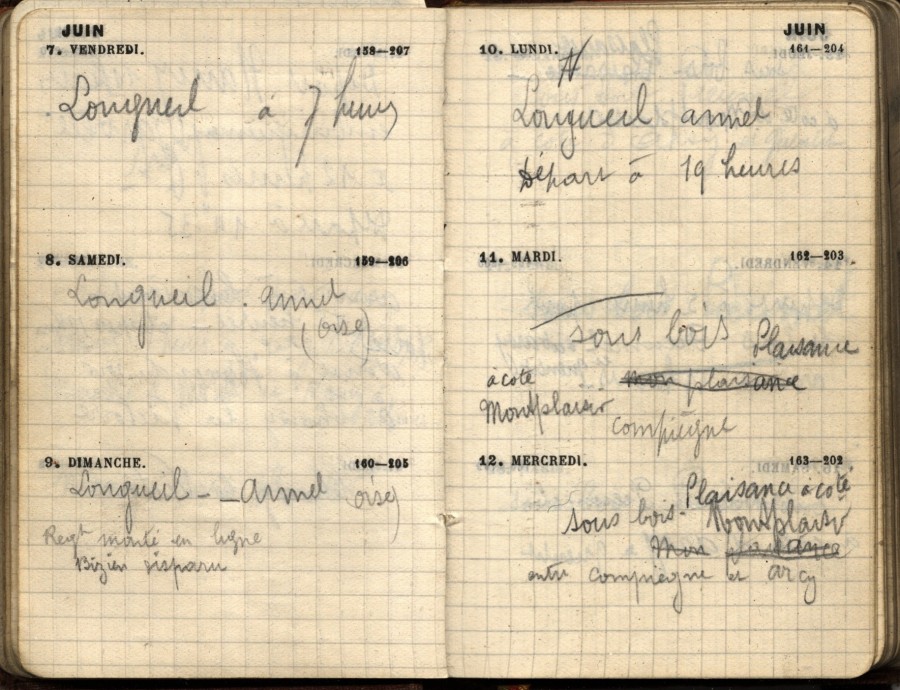 JUIN
7. VENDREDI. 158—207
Longueil à 7 heures
8. SAMEDI. 159—206
Longueil . annel
(oise)
9. DIMANCHE. 160—205
Longueil - - Annel oise)
Regt monté en ligne
Bizien disparu
JUIN
10. LUNDI. 161—204
Longueil annel
Départ à 19 heures
11. MARDI. 162—203
sous bois Plaisance
à coté mon plaisance
Montplaisir
compiègne
12. MERCREDI. 163—202
Plaisance à coté
sous bois. Montplaisir
Mon plaisance
entre compiegne et arcy